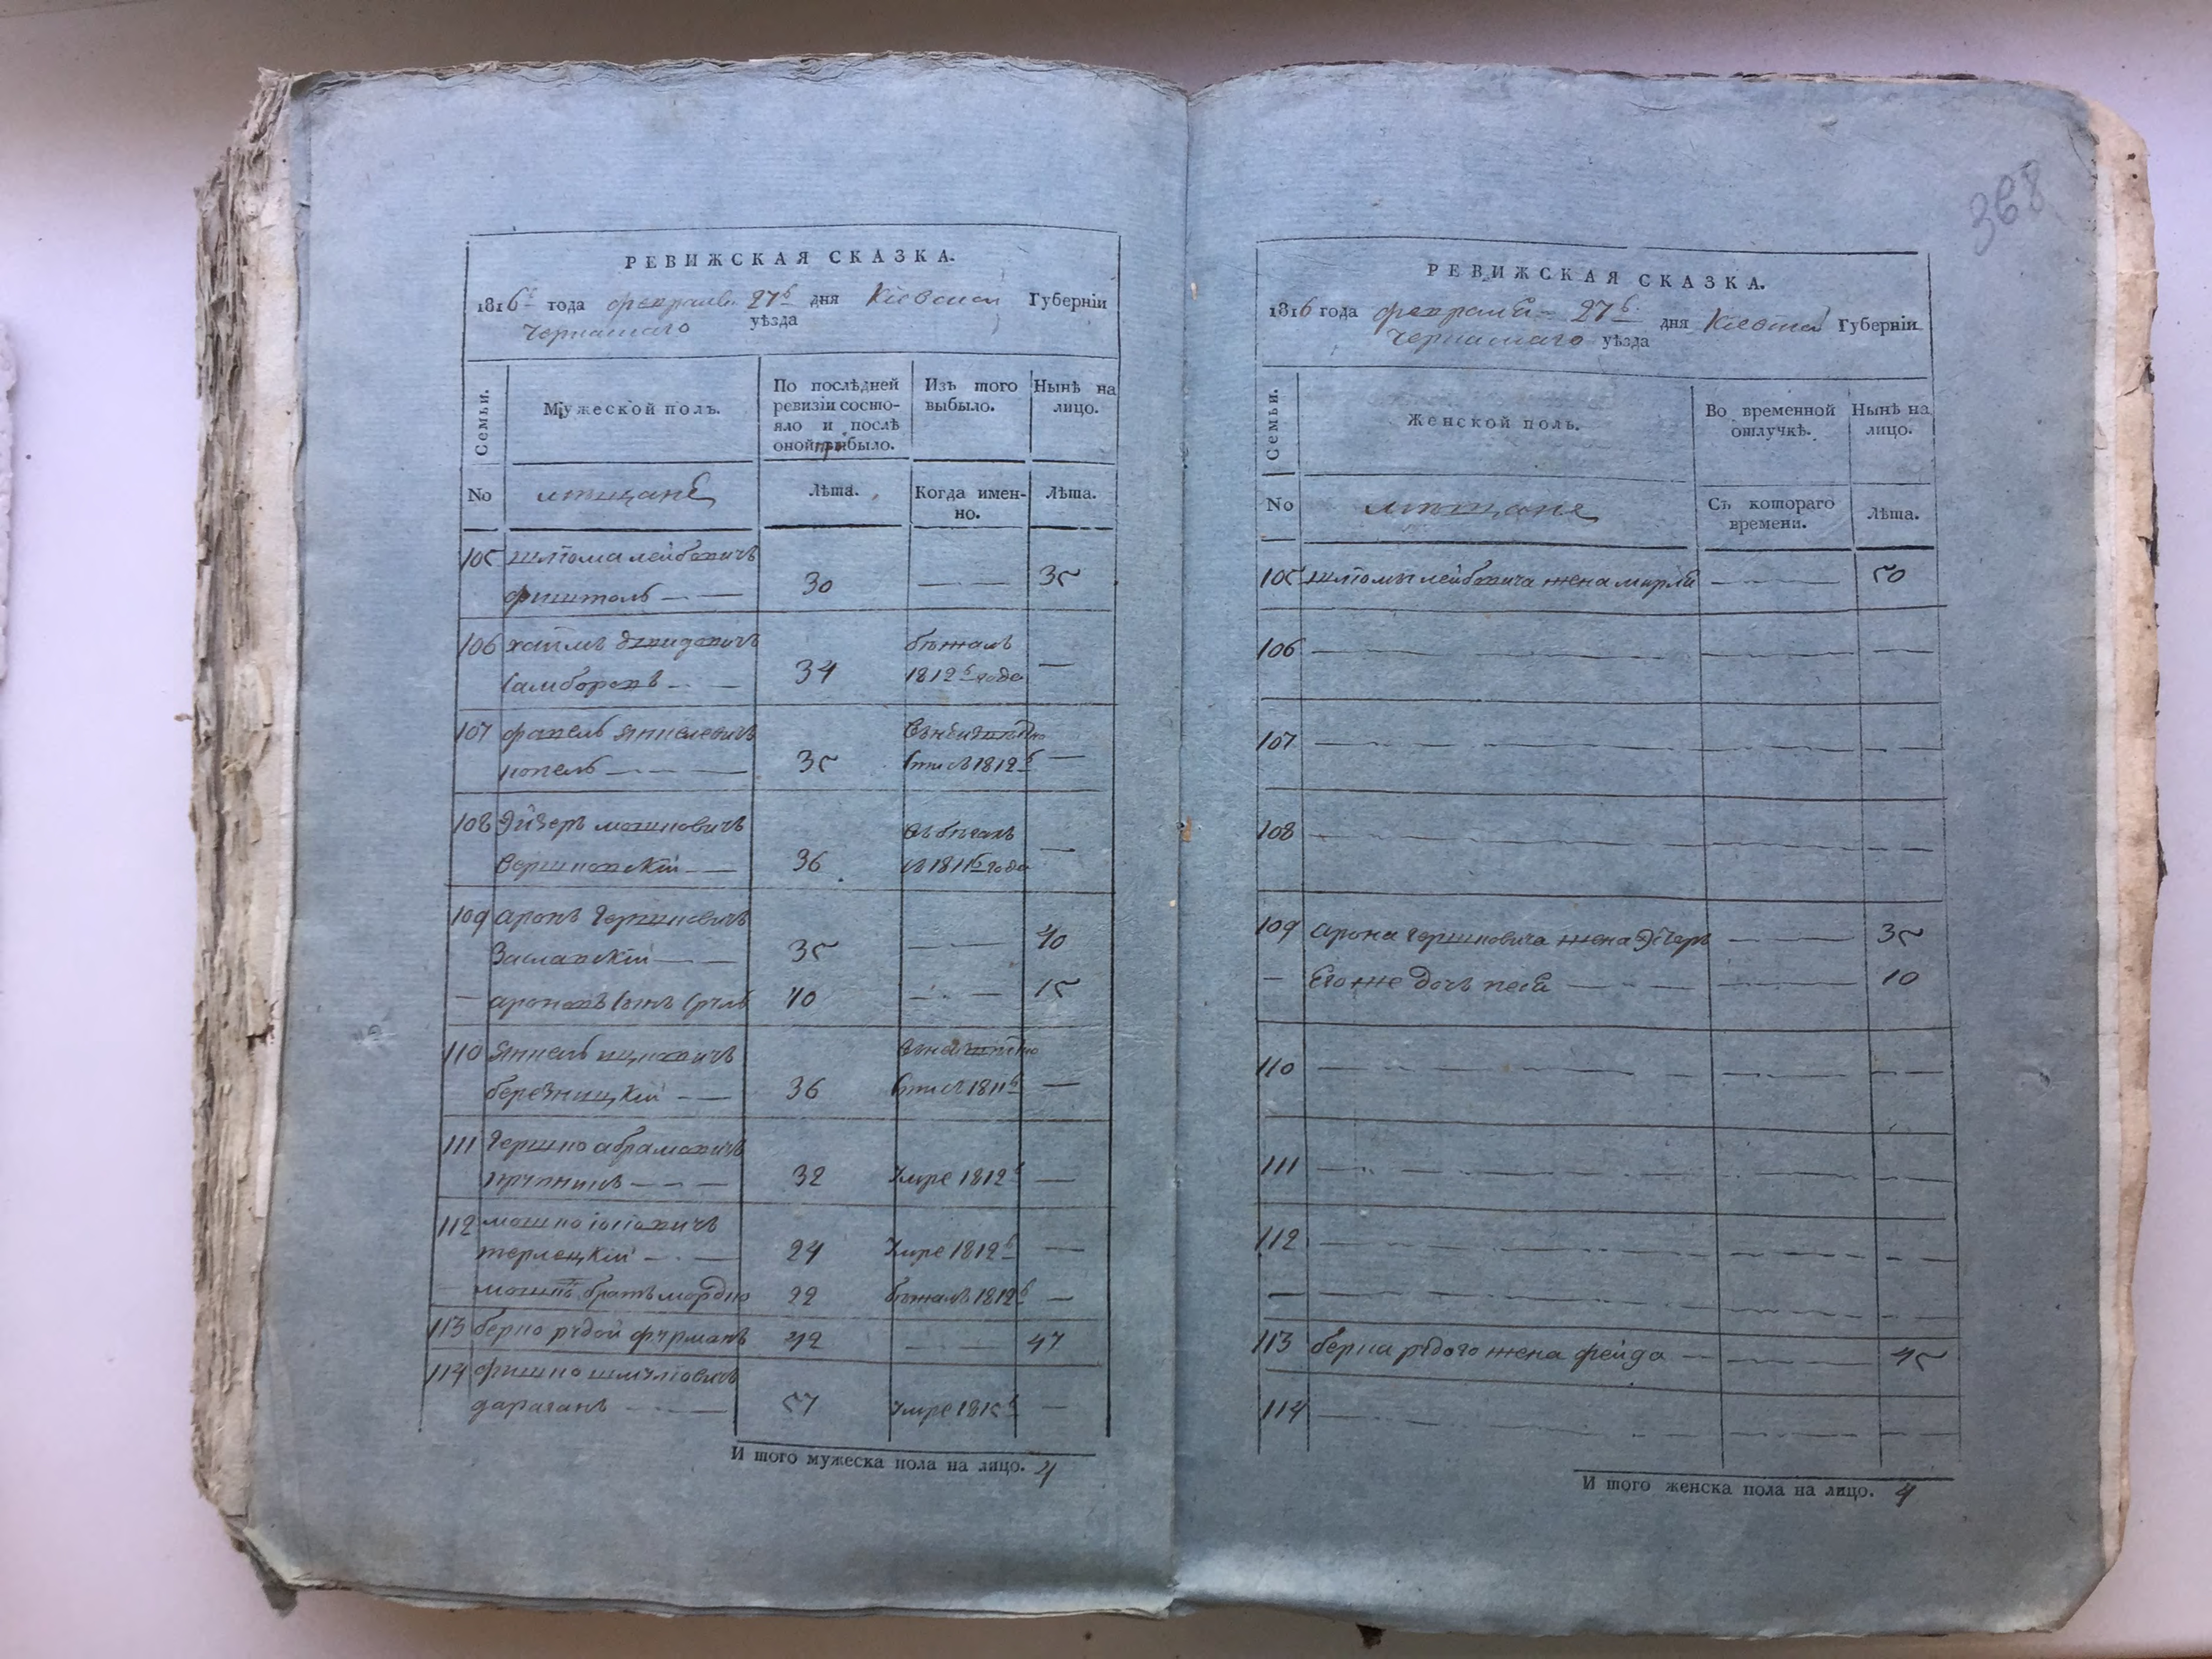 РЕВИЖСКАЯ СКАЗКА.
1816 года февраля 27 дня Кіевской Губерніи
Черкаскаго уѣзда
Семьи.
Мужеской полъ.
По послѣдней ревизіи состояло и послѣ оной прибыло.
Изъ того выбыло.
Нынѣ на лицо.
No
мещане
Лѣта.
Когда именно.
Лѣта.
105 шліома лейбовичъ
фиштель 30 35
106 хаимъ давидовичъ бѣжалъ
Самборовъ 34 1812 года
107 фавель янкелевичъ
копель 35 1812
108 Эйзеръ мошковичъ въ бѣгахъ
Вершковскій 36 съ 1811 года
109 аронъ Гершковичъ
Заславскій 35 40
ароновъ сынъ сруль 10 15
110 янкель ицковичъ
березницкій 36 1811
111 Гершко абрамовичъ
32 Умре 1812
112 мошко іосіовичъ
терлецкій 24 Умре 1812
мошки братъ мордко 22 бѣжалъ 1812
113 берко рудой фурманъ 42 47
114 фишко шмуліовичъ
дараганъ 57 Умре 1815
И того мужеска пола на лицо. 4
368
РЕВИЖСКАЯ СКАЗКА.
1816 года февраля 27 дня Кіевской Губерніи
Черкаскаго уѣзда
Семьи.
Женской полъ.
Во временной отлучкѣ.
Нынѣ на лицо.
No
мещане
Съ котораго времени.
Лѣта.
105 шліомы лейбовича жена мирля 50
106
107
108
109 арона гершковича жена Эстеръ 35
Его же дочь песя 10
110
111
112
113 берка рудого жена фейда 45
114
И того женска пола на лицо. 4